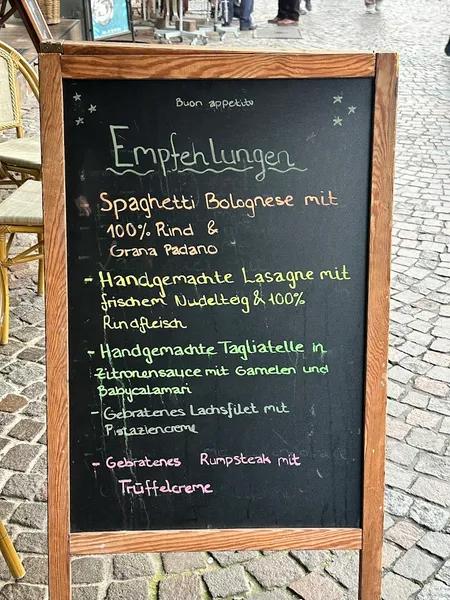 Buon appetito
Empfehlungen
- Spaghetti Bolognese mit
100% Rind &
Grana Padano
- Handgemachte Lasagne mit
frischem Nudelteig & 100%
Rindfleisch
- Handgemachte Tagliatelle in
Zitronensauce mit Gamelen und
Babycalamari
- Gebratenes Lachsfilet mit
Pistaziencreme
- Gebratenes Rumpsteak mit
Trüffelcreme